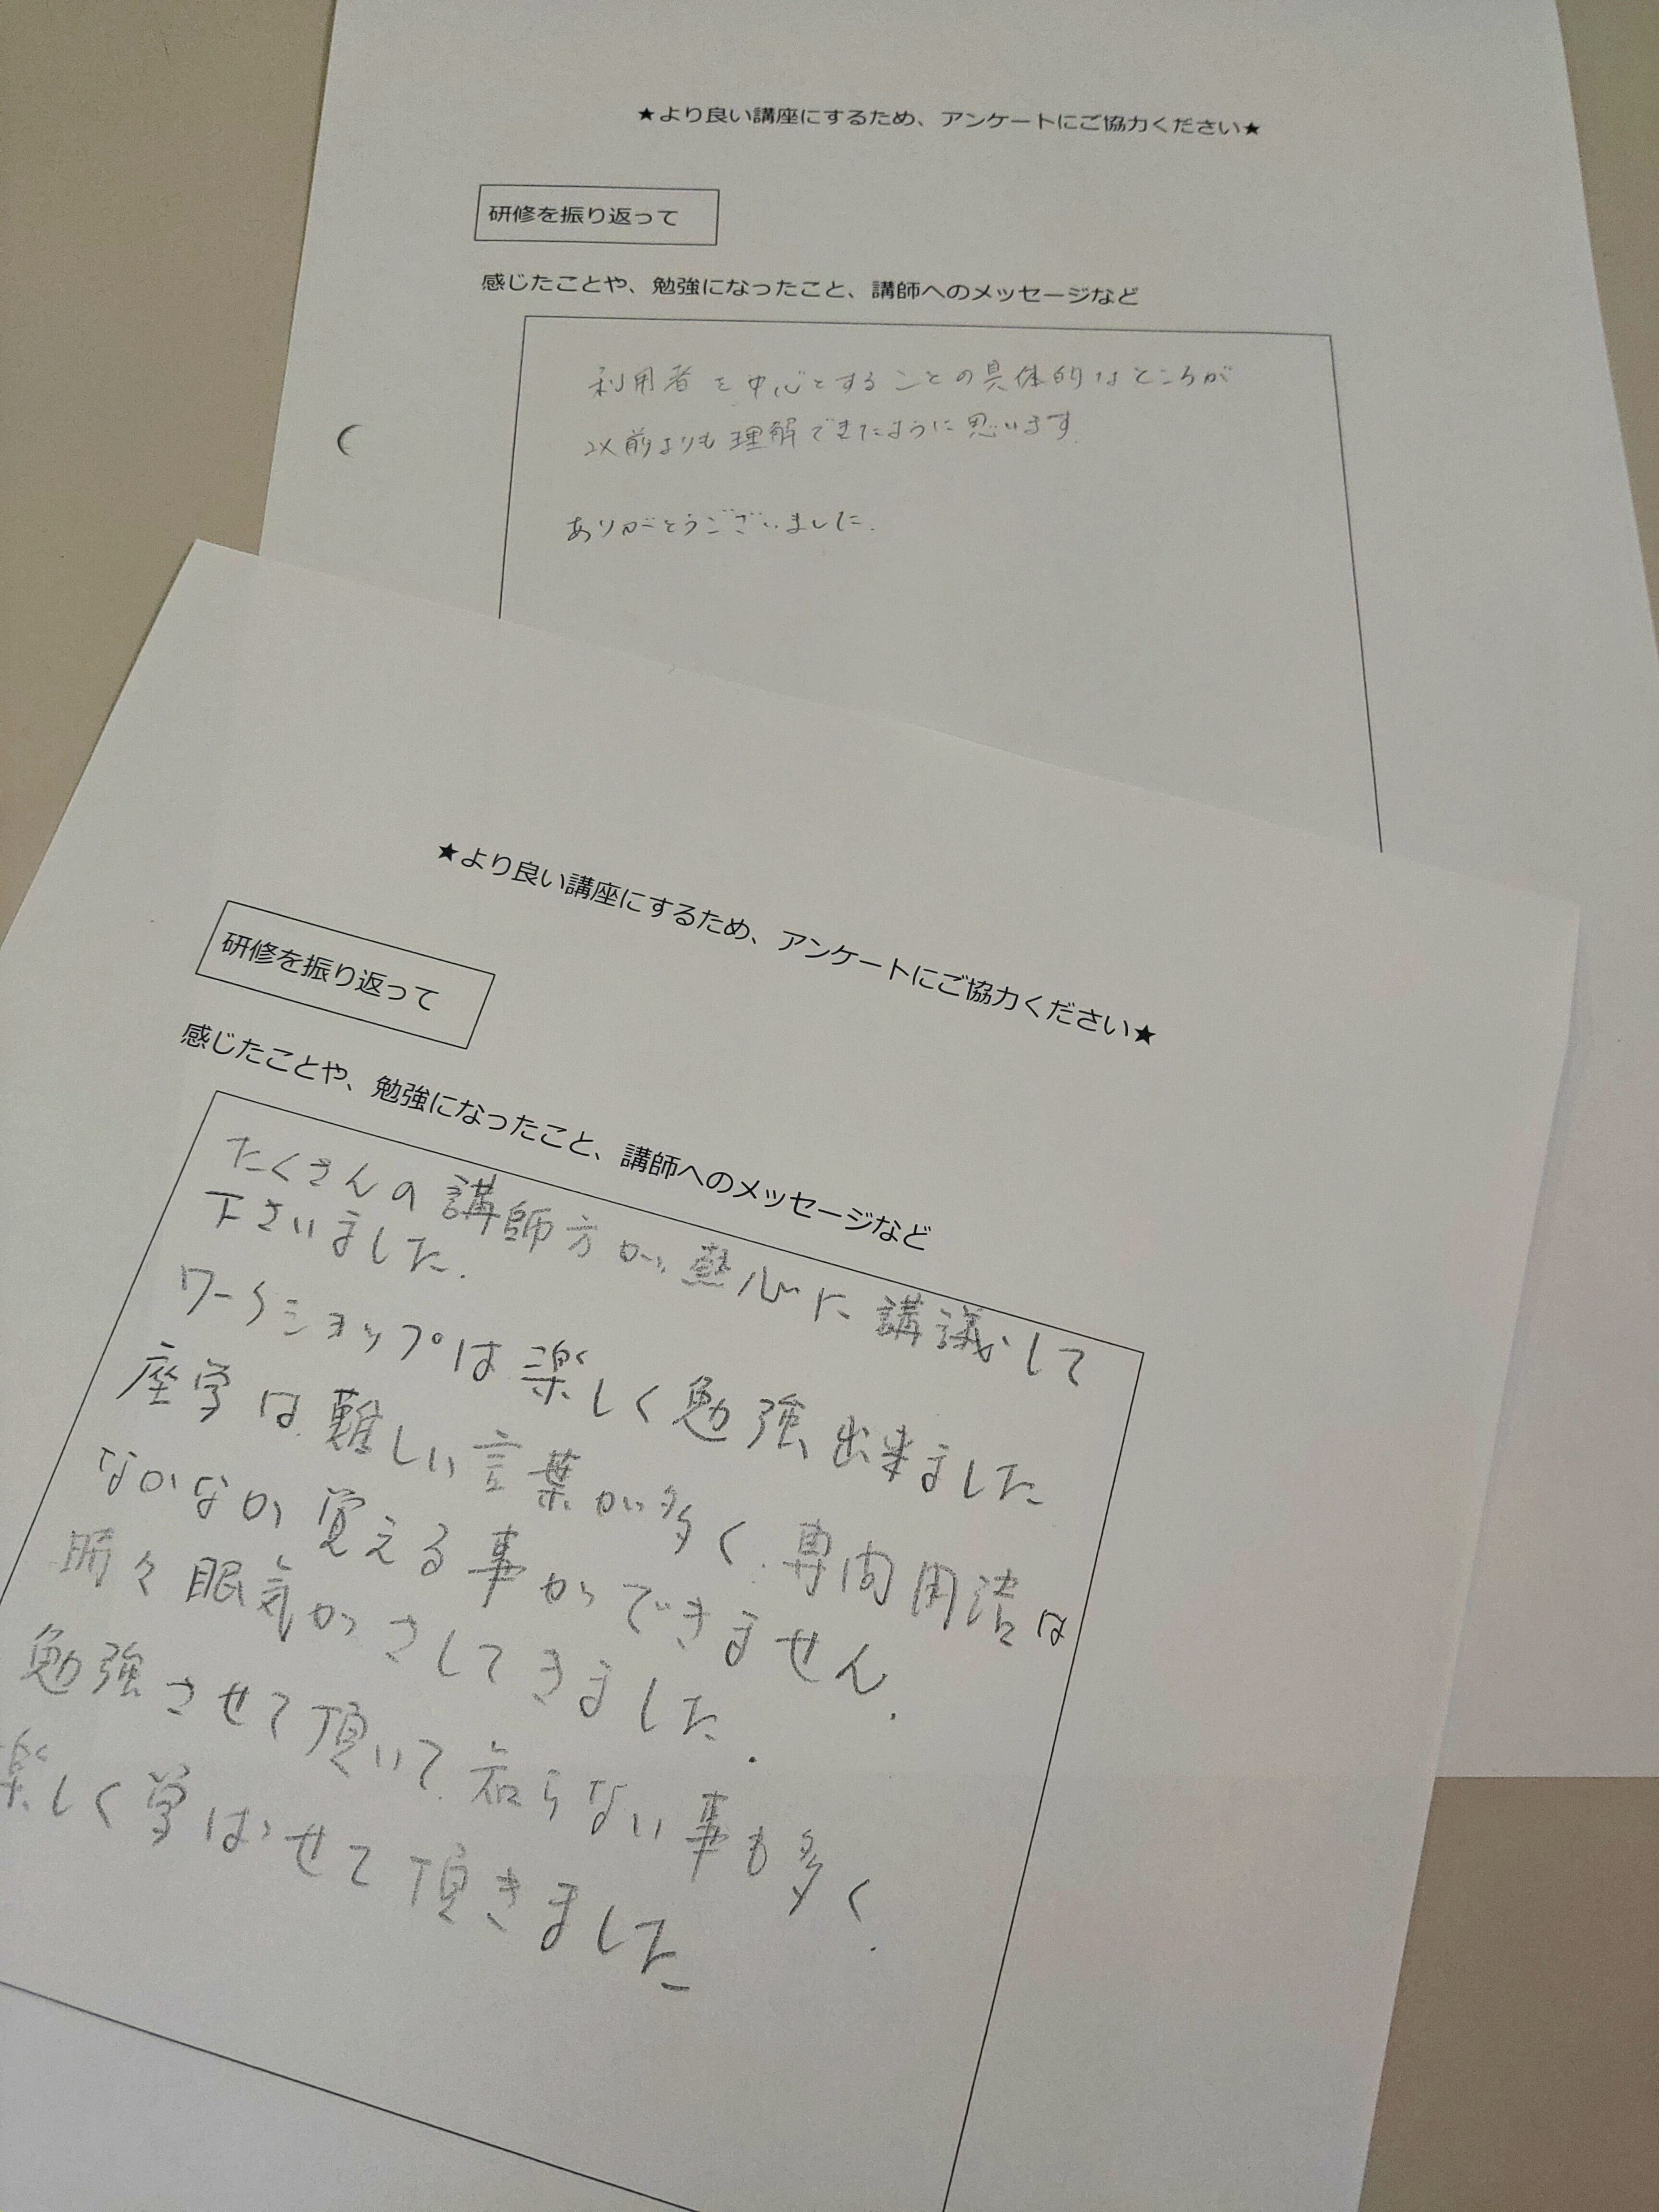 ★より良い講座にするため、アンケートにご協力ください★
研修を振り返って
感じたことや、勉強になったこと、講師へのメッセージなど
利用者を中心とすることの具体的なところが
以前よりも理解できたように思います。
ありがとうございました。
★より良い講座にするため、アンケートにご協力ください★
研修を振り返って
感じたことや、勉強になったこと、講師へのメッセージなど
たくさんの講師方が熱心に講議して
下さいました.
ワークショップは楽しく勉強出来ました
座学は難しい言葉が多く.専門用語は
なかなか覚える事ができません.
時々眠気がさしてきました.
勉強させて頂いて知らない事も多く.
楽しく学ばせて頂きました